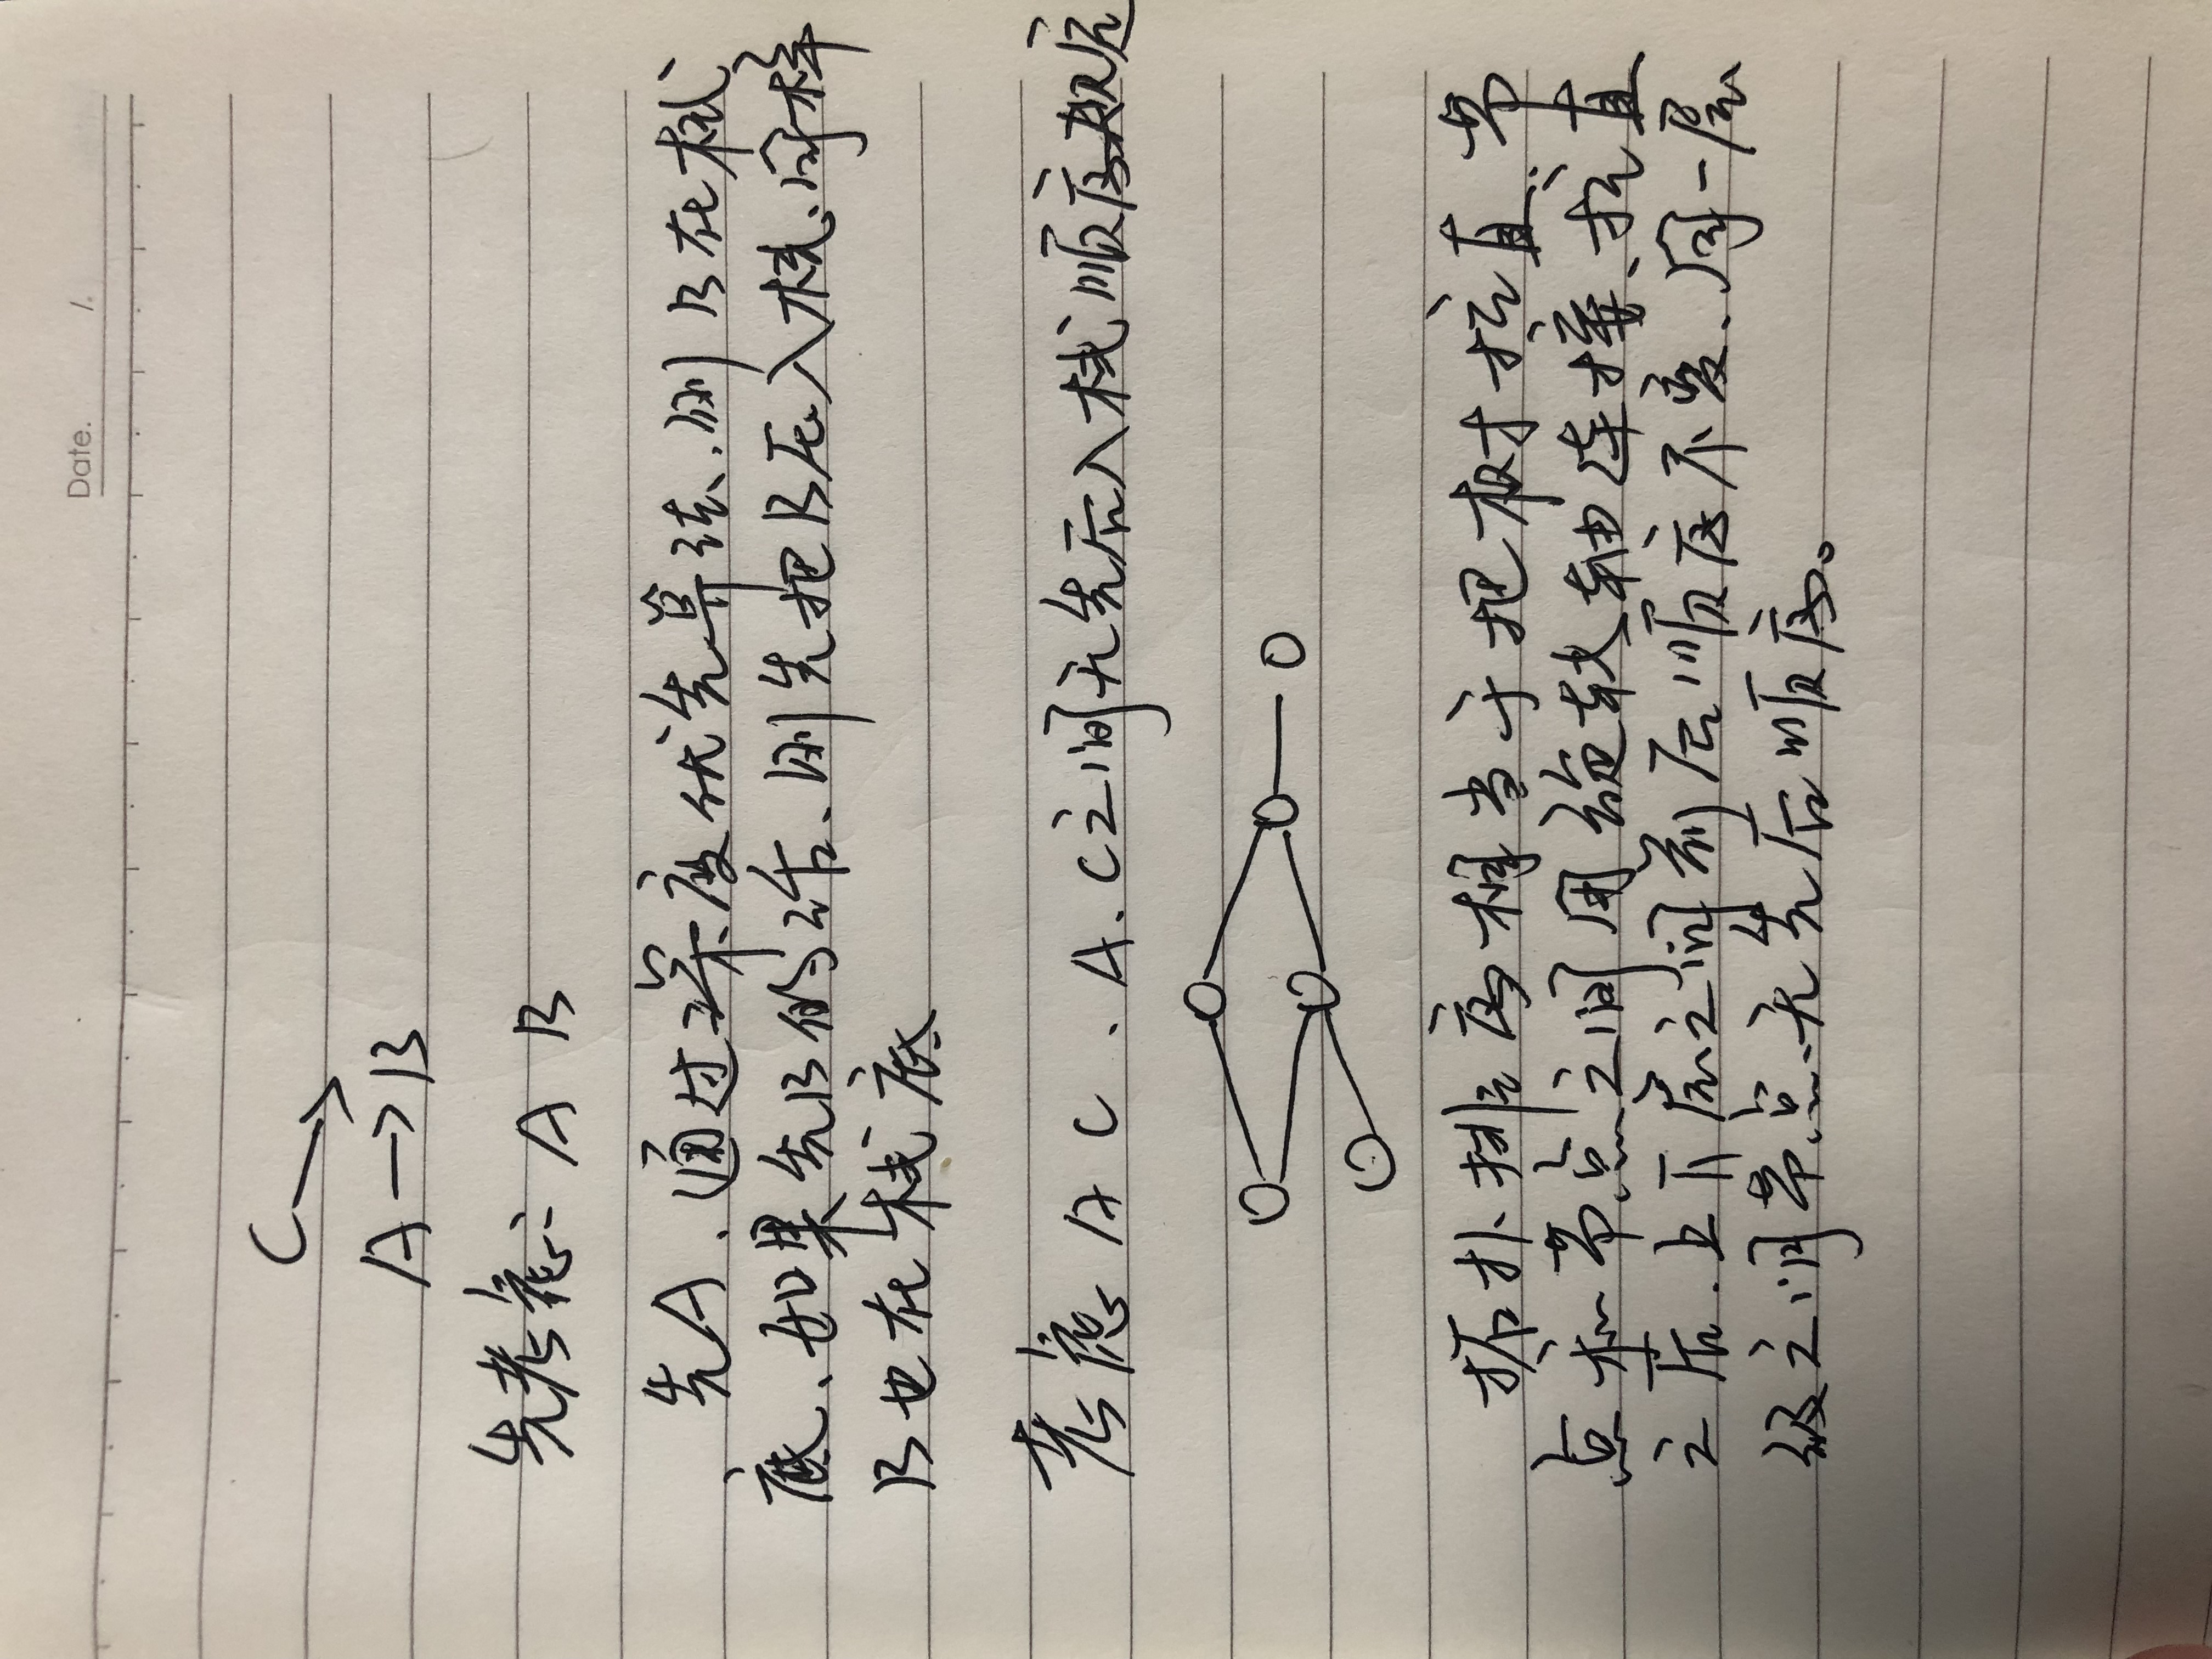 Date. /.
C
A → B
先考虑: A B
先A、通过深度优先算法、则B在栈
底、如果先B的话、则先把B压入栈、同样
B也在栈底
考虑 A C 、A、C之间无先后入栈顺序规定
拓扑排序相当于把树拉直、节
点和节点之间用旋转轴连接、拉直
之后、上下层之间前后顺序不变、同一层
级之间节点无先后顺序。